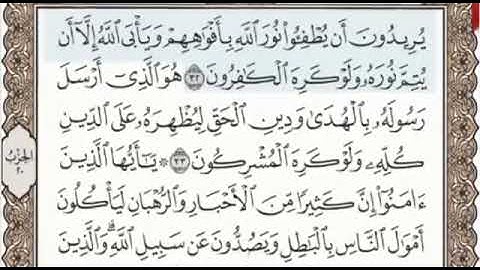 يُرِيدُونَ أَن يُطْفِـُٔوا۟ نُورَ ٱللَّهِ بِأَفْوَٰهِهِمْ وَيَأْبَى ٱللَّهُ إِلَّآ أَن
يُتِمَّ نُورَهُۥ وَلَوْ كَرِهَ ٱلْكَـٰفِرُونَ ٣٢ هُوَ ٱلَّذِىٓ أَرْسَلَ
رَسُولَهُۥ بِٱلْهُدَىٰ وَدِينِ ٱلْحَقِّ لِيُظْهِرَهُۥ عَلَى ٱلدِّينِ
كُلِّهِۦ وَلَوْ كَرِهَ ٱلْمُشْرِكُونَ ٣٣ ۞ يَـٰٓأَيُّهَا ٱلَّذِينَ
ءَامَنُوٓا۟ إِنَّ كَثِيرًا مِّنَ ٱلْأَحْبَارِ وَٱلرُّهْبَانِ لَيَأْكُلُونَ
أَمْوَٰلَ ٱلنَّاسِ بِٱلْبَـٰطِلِ وَيَصُدُّونَ عَن سَبِيلِ ٱللَّهِ ۗ وَٱلَّذِينَ
الحزب
٢٠